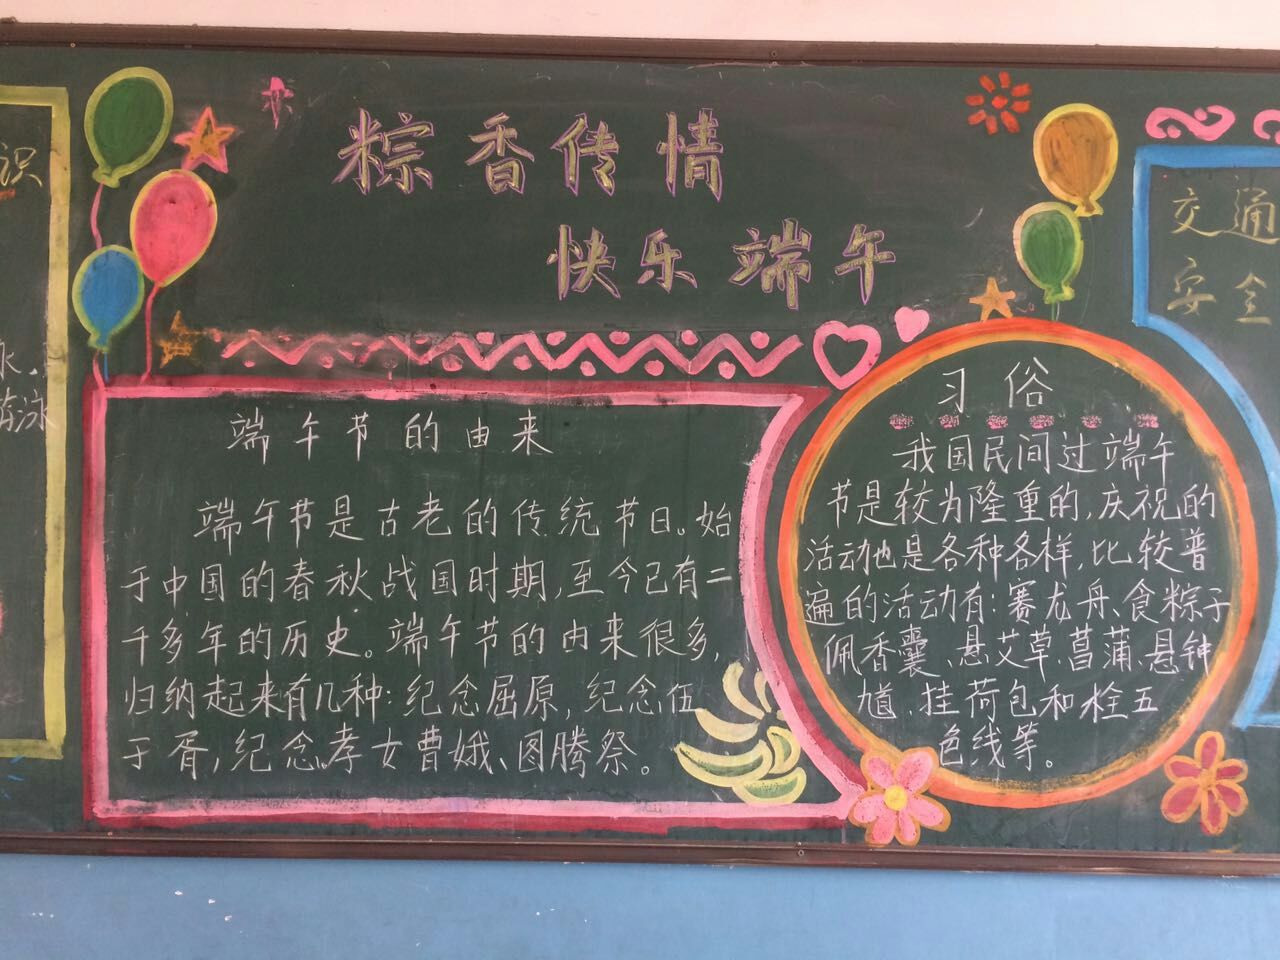 粽香传情
快乐端午
端午节的由来
端午节是古老的传统节日。始
于中国的春秋战国时期,至今已有二
千多年的历史。端午节的由来很多,
归纳起来有几种:纪念屈原,纪念伍
于胥,纪念孝女曹娥、图腾祭。
习俗
我国民间过端午
节是较为隆重的,庆祝的
活动也是各种各样,比较普
遍的活动有:赛龙舟、食粽子
佩香囊、悬艾草、菖蒲、悬钟
馗、挂荷包和栓五
色线等。
交通
安全
识
泳